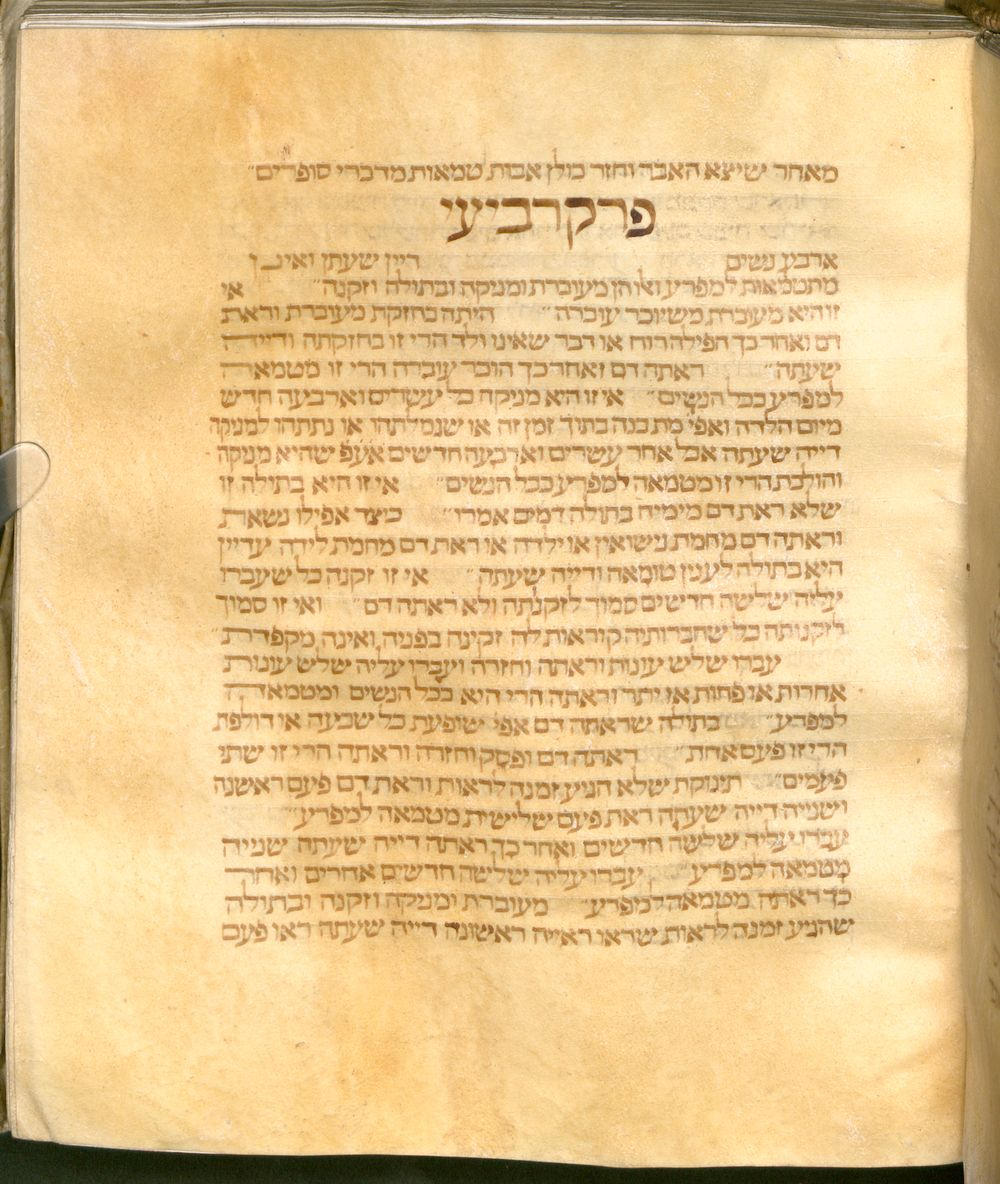 מאחר שיצא האבר וחזר כולן אבות טמאות מדברי סופרים״
פרק רביעי
ארבע נשים דיין שעתן ואינן
מתטמאות למפרע ואלו הן מעוברת ומניקה ובתולה וזקנה״ אי
זו היא מעוברת משיוכר עוברה״ היתה בחזקת מעוברת וראת
דם ואחר כך הפילה רוח או דבר שאינו ולד הרי זו בחזקתה ודייה
שעתה״ ראתה דם ואחר כך הוכר עוברה הרי זו מטמאה
למפרע ככל הנשים״ אי זו היא מניקה כל עשרים וארבעה חדש
מיום הלדה ואפי׳ מת בנה בתוך זמן זה או שגמלתהו או נתתהו למניקה
דייה שעתה אבל אחר עשרים וארבעה חדשים אעפ שהיא מניקה
והולכת הרי זו מטמאה למפרע ככל הנשים״ אי זו היא בתולה זו
שלא ראת דם מימיה בתולה דמים אמרו״ כיצד אפילו נשאת
וראתה דם מחמת נישואין או ילדה או ראת דם מחמת לידה עדיין
היא בתולה לענין טומאה ודייה שעתה״ אי זו זקנה כל שעברו
עליה שלישה חדשים סמוך לזקנתה ולא ראתה דם״ ואי זו סמוך
לזקנותה כל שחברותיה קוראות לה זקינה בפניה ואינה מקפדת
עברו שליש עונות וראתה וחזרה ועברו עליה שליש עונות
אחרות או פחות או יתר וראתה הרי היא ככל הנשים ומטמאה
למפרע״ בתולה שראתה דם אפי׳ שופעת כל שבעה או דולפת
הרי זו פעם אחת״ ראתה דם ופסק וחזרה וראתה הרי זו שתי
פעמים״ תינוקת שלא הגיע זמנה לראות וראת דם פעם ראשונה
ושנייה דייה שעתה ראת פעם שלישית מטמאה למפרע״
עברו עליה שלישה חדשים ואחר כך ראתה דייה שעתה שנייה
מטמאה למפרע״ עברו עליה שלישה חדשים אחרים ואחר
כך ראתה מטמאה למפרע״ מעוברת ומניקה וזקנה ובתולה
שהגיע זמנה לראות שראו ראייה ראשונה דייה שעתה ראו פעם